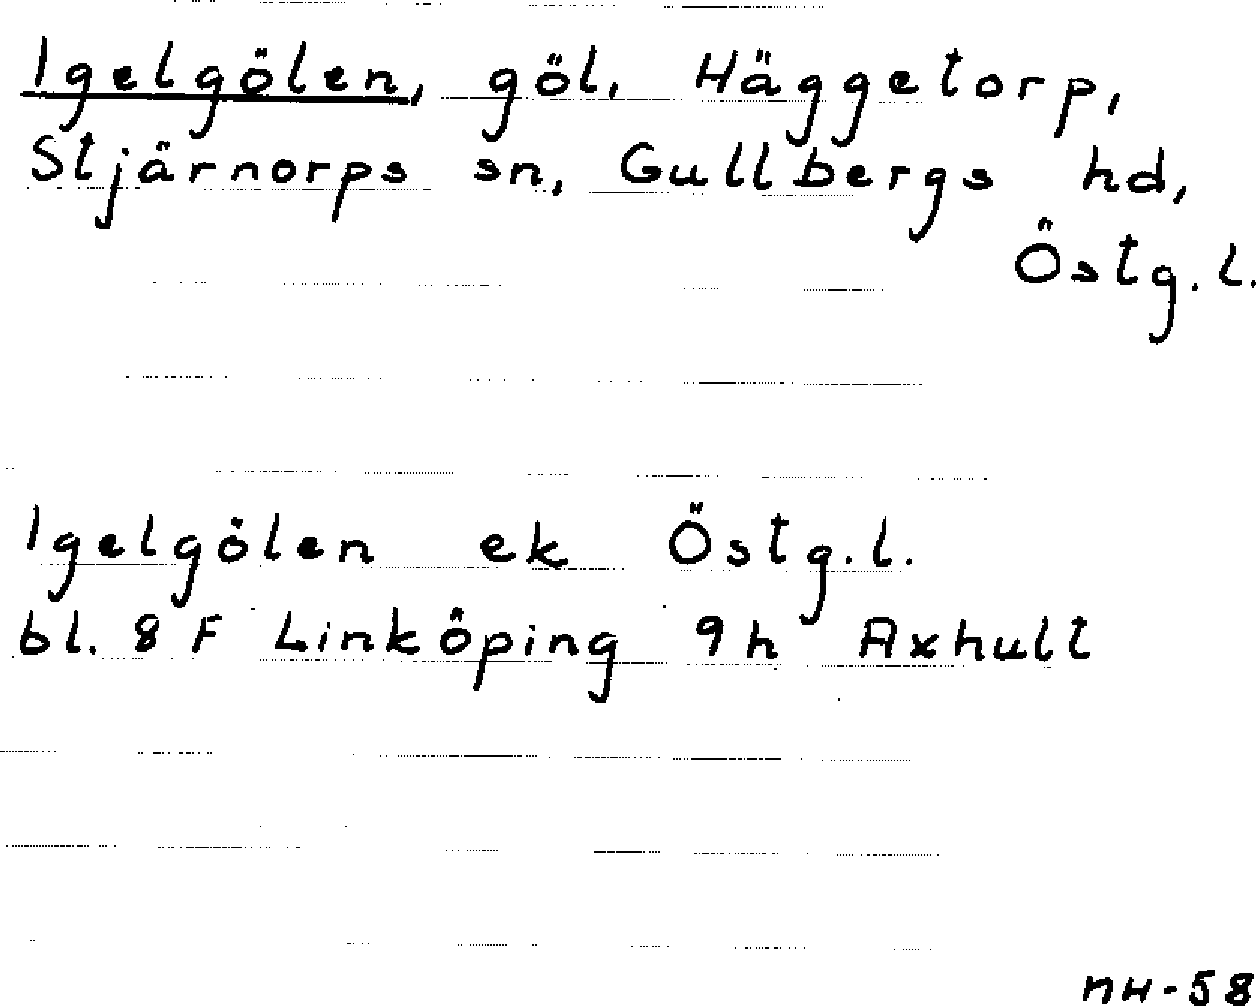 Igelgölen, göl, Häggetorp,
Stjärnorps sn, Gullbergs hd,
Östg.l.
Igelgölen ek Östg.l.
bl. 8 F Linköping 9h Axhult
NH-58